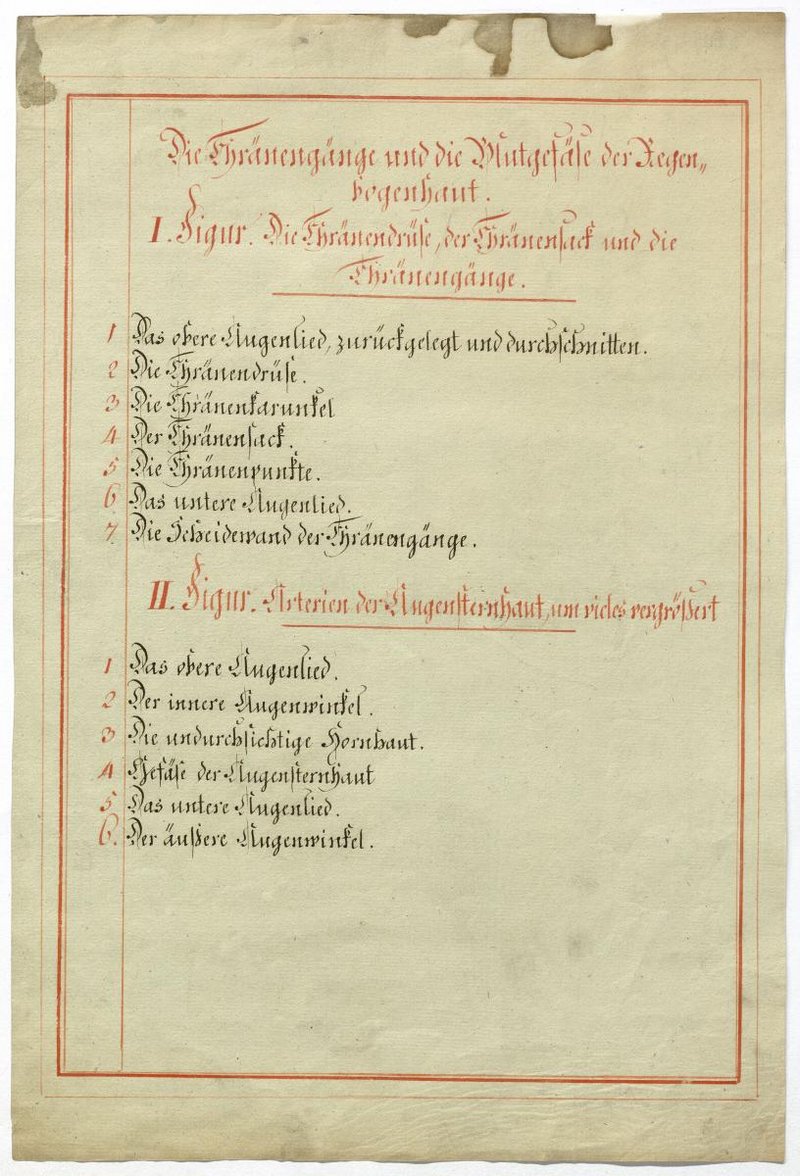 Die Thränengänge und die Blutgefäse der Regen„
bogenhaut.
I. Figur. Die Thränendrüse, der Thränensack und die
Thränengänge.
1 Das obere Augenlied, zurückgelegt und durchschnitten.
2 Die Thränendrüse.
3 Die Thränenkarunkel
4 Der Thränensack.
5 Die Thränenpunkte.
6 Das untere Augenlied.
7 Die Scheidewand der Thränengänge.
II. Figur. Arterien der Augensternhaut, um vieles vergrößert
1 Das obere Augenlied.
2 Der innere Augenwinkel.
3 Die undurchsichtige Hornhaut.
4 Gefäse der Augensternhaut
5 Das untere Augenlied.
6. Der äußere Augenwinkel.